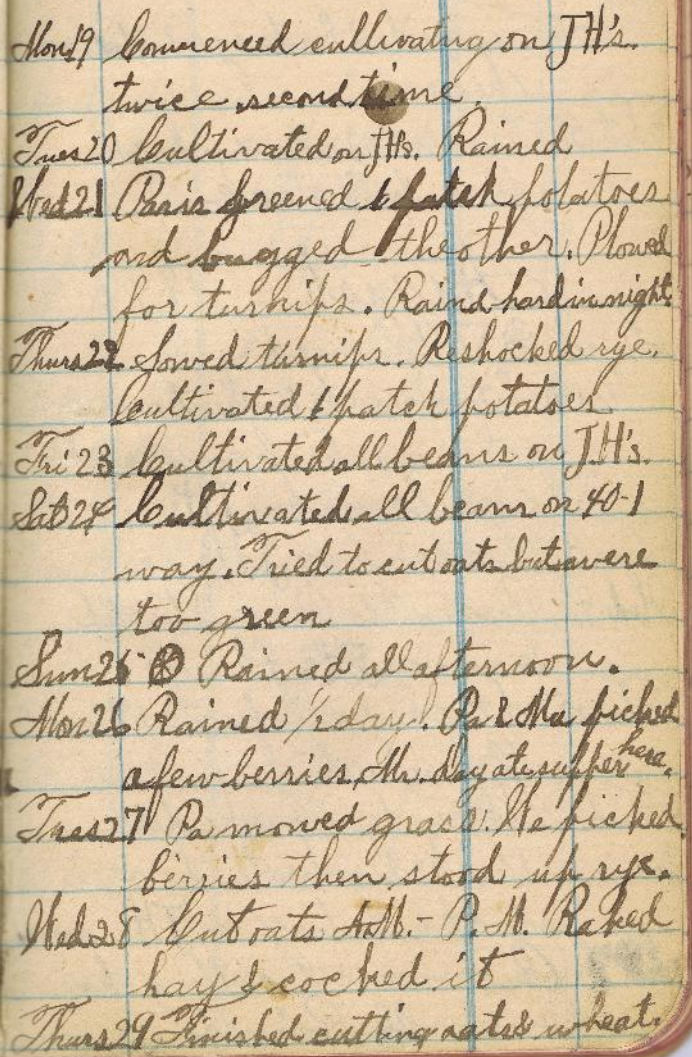 Mon 19 Commenced cultivating on JH's.
twice second time.
Tues 20 Cultivated on JHs. Rained
Wed 21 Paris Greened 1 patch potatoes
and bugged the other. Plowed
for turnips. Raind hard in night.
Thurs 22 Sowed turnips. Reshocked rye.
Cultivated 1 patch potatoes
Fri 23 Cultivated all beans on J.H's.
Sat 24 Cultivated all beans on 40-1
way. Tried to cut oats but were
too green
Sun 25 Rained all afternoon.
Mon 26 Rained 1/2 day. Pa & Ma picked
a few berries. Mr. Day ate supper here.
Tues 27 Pa mowed grass. We picked
berries then stood up rye.
Wed 28 Cut oats A.M. - P.M. Raked
hay & cocked it
Thurs 29 Finished cutting oats & wheat.